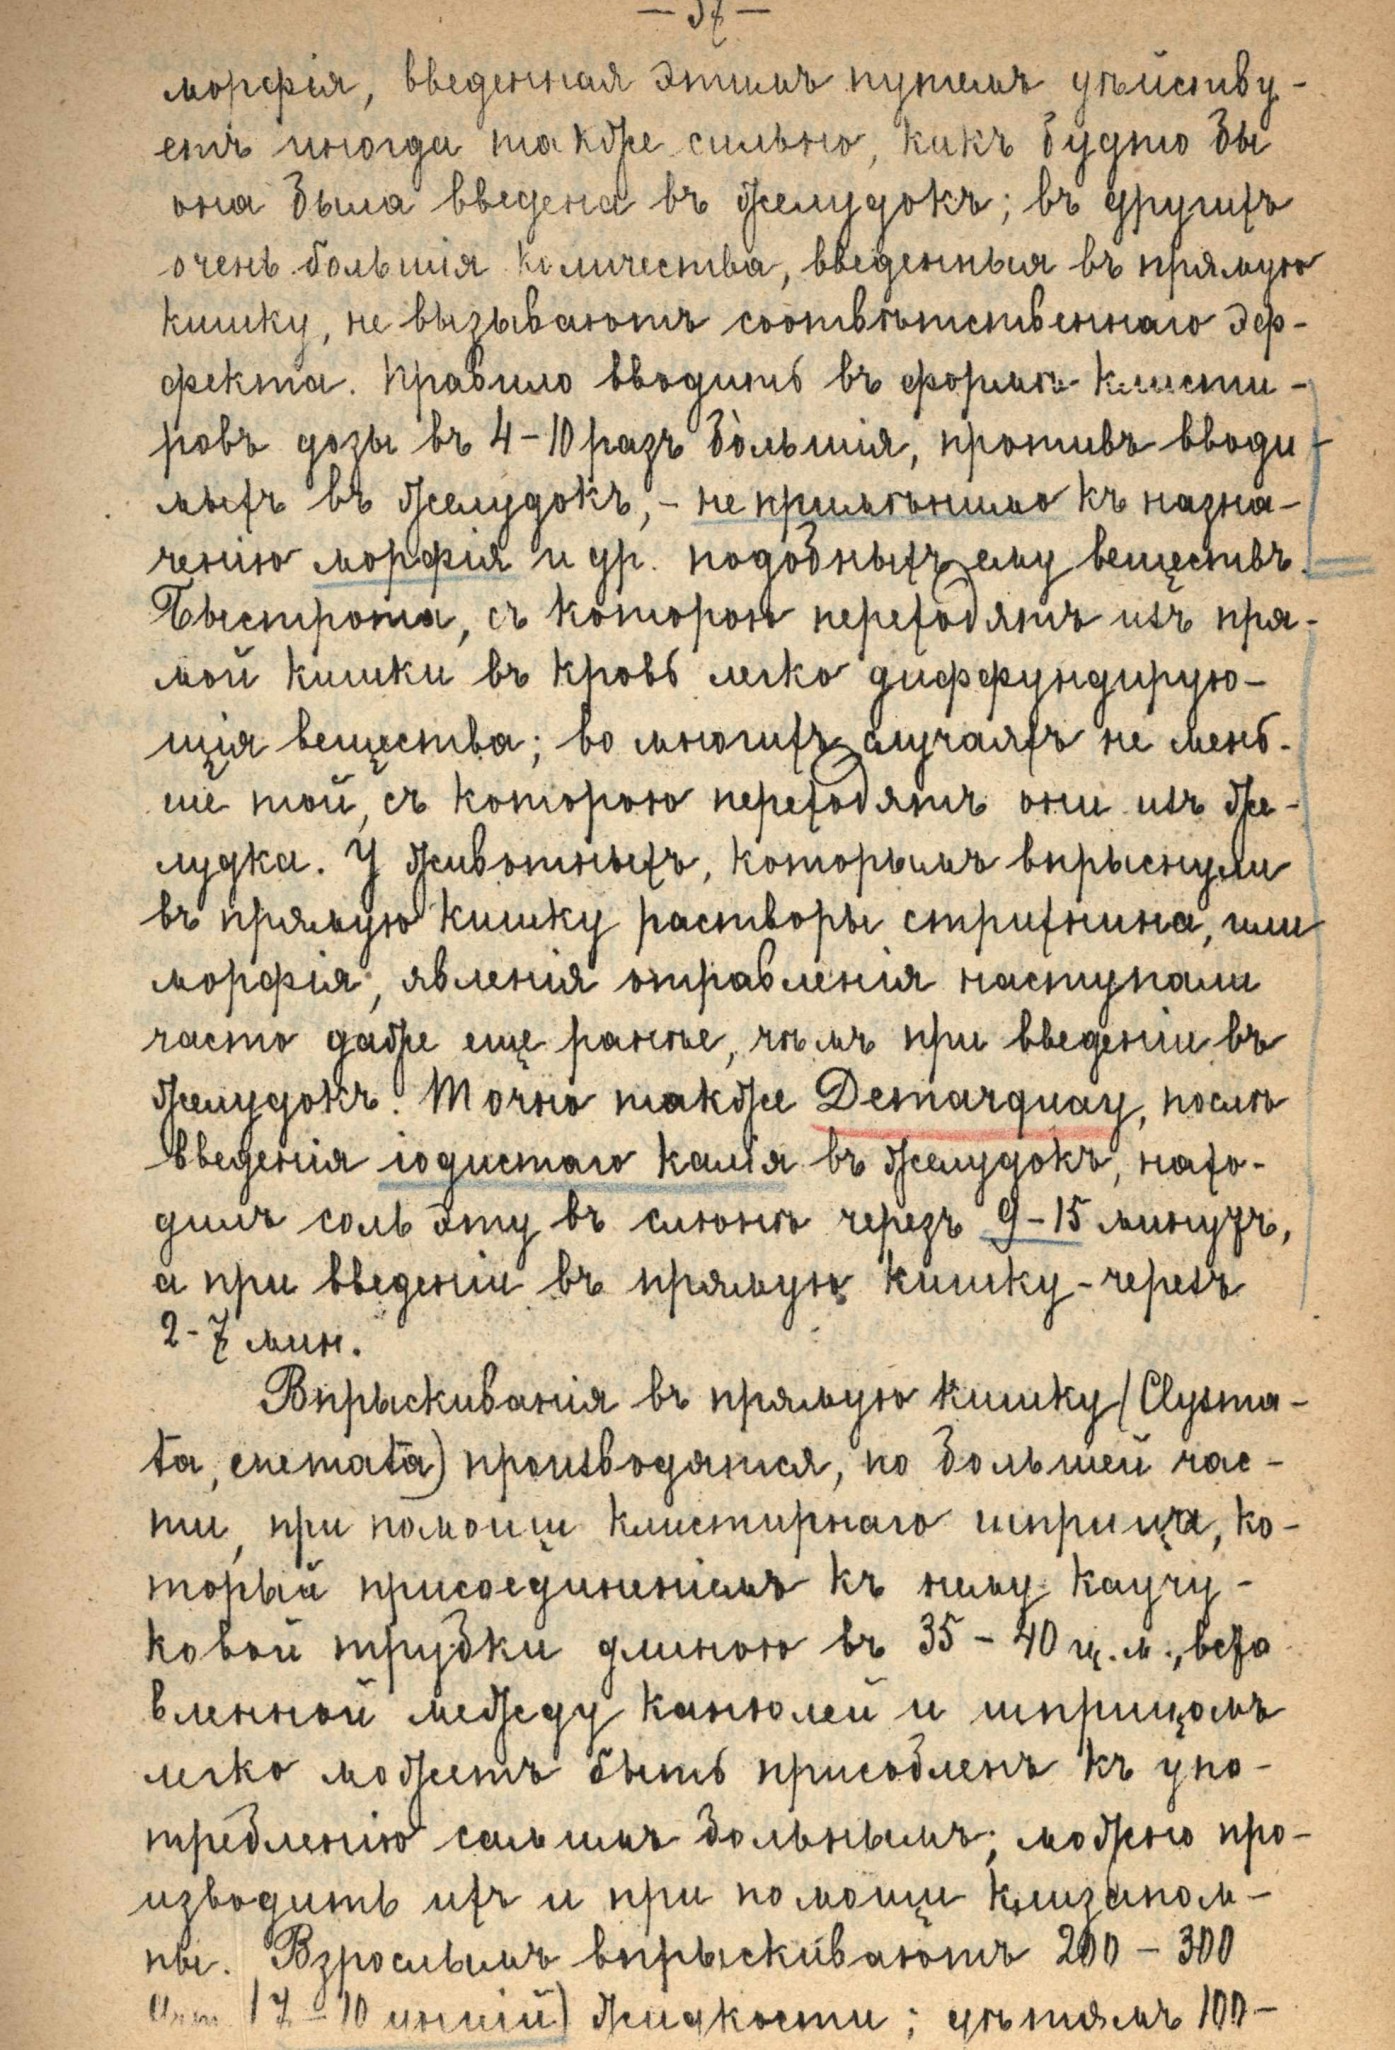 — 37 —
морфія, введенная этимъ путемъ дѣйству-
етъ иногда также сильно, какъ будто бы
она была введена въ желудокъ; въ другихъ
очень большія количества, введенныя въ прямую
кишку, не вызываютъ соотвѣтственнаго эф-
фекта. Правило вводить въ формѣ клисти-
ровъ дозы въ 4-10 разъ бо̀льшія, противъ вводи-
мыхъ въ желудокъ, - не примѣнимо къ назна-
ченію морфія и др. подобныхъ ему веществъ.
Быстрота, съ которою переходятъ изъ пря-
мой кишки въ кровь легко диффундирую-
щія вещества; во многихъ случаяхъ не мень-
ше той, съ которою переходятъ они изъ же-
лудка. У животныхъ, которымъ впрыснули
въ прямую кишку растворы стрихнина, или
морфія, явленія отравленія наступали
часто даже еще ранѣе, чѣмъ при введеніи въ
желудокъ. Точно также Demarquay, послѣ
введенія іодистаго калія въ желудокъ, нахо-
дилъ соль эту въ слюнѣ черезъ 9-15 минутъ,
а при введеніи въ прямую кишку - черезъ
2-7 мин.
Впрыскиванія въ прямую кишку (Clysma-
ta, enemata) производятся, по большей час-
ти, при помощи клистирнаго шприца, ко-
торый присоединеніемъ къ нему каучу-
ковой трубки длиною въ 35 - 40 ц.м., вста
вленной между канюлей и шприцомъ
легко можетъ быть приспобленъ къ упо-
требленію самимъ больнымъ; можно про-
изводить ихъ и при помощи клизопом-
пы. Взрослымъ впрыскиваютъ 200 - 300
(7 - 10 унцій) жидкости; дѣтямъ 100-